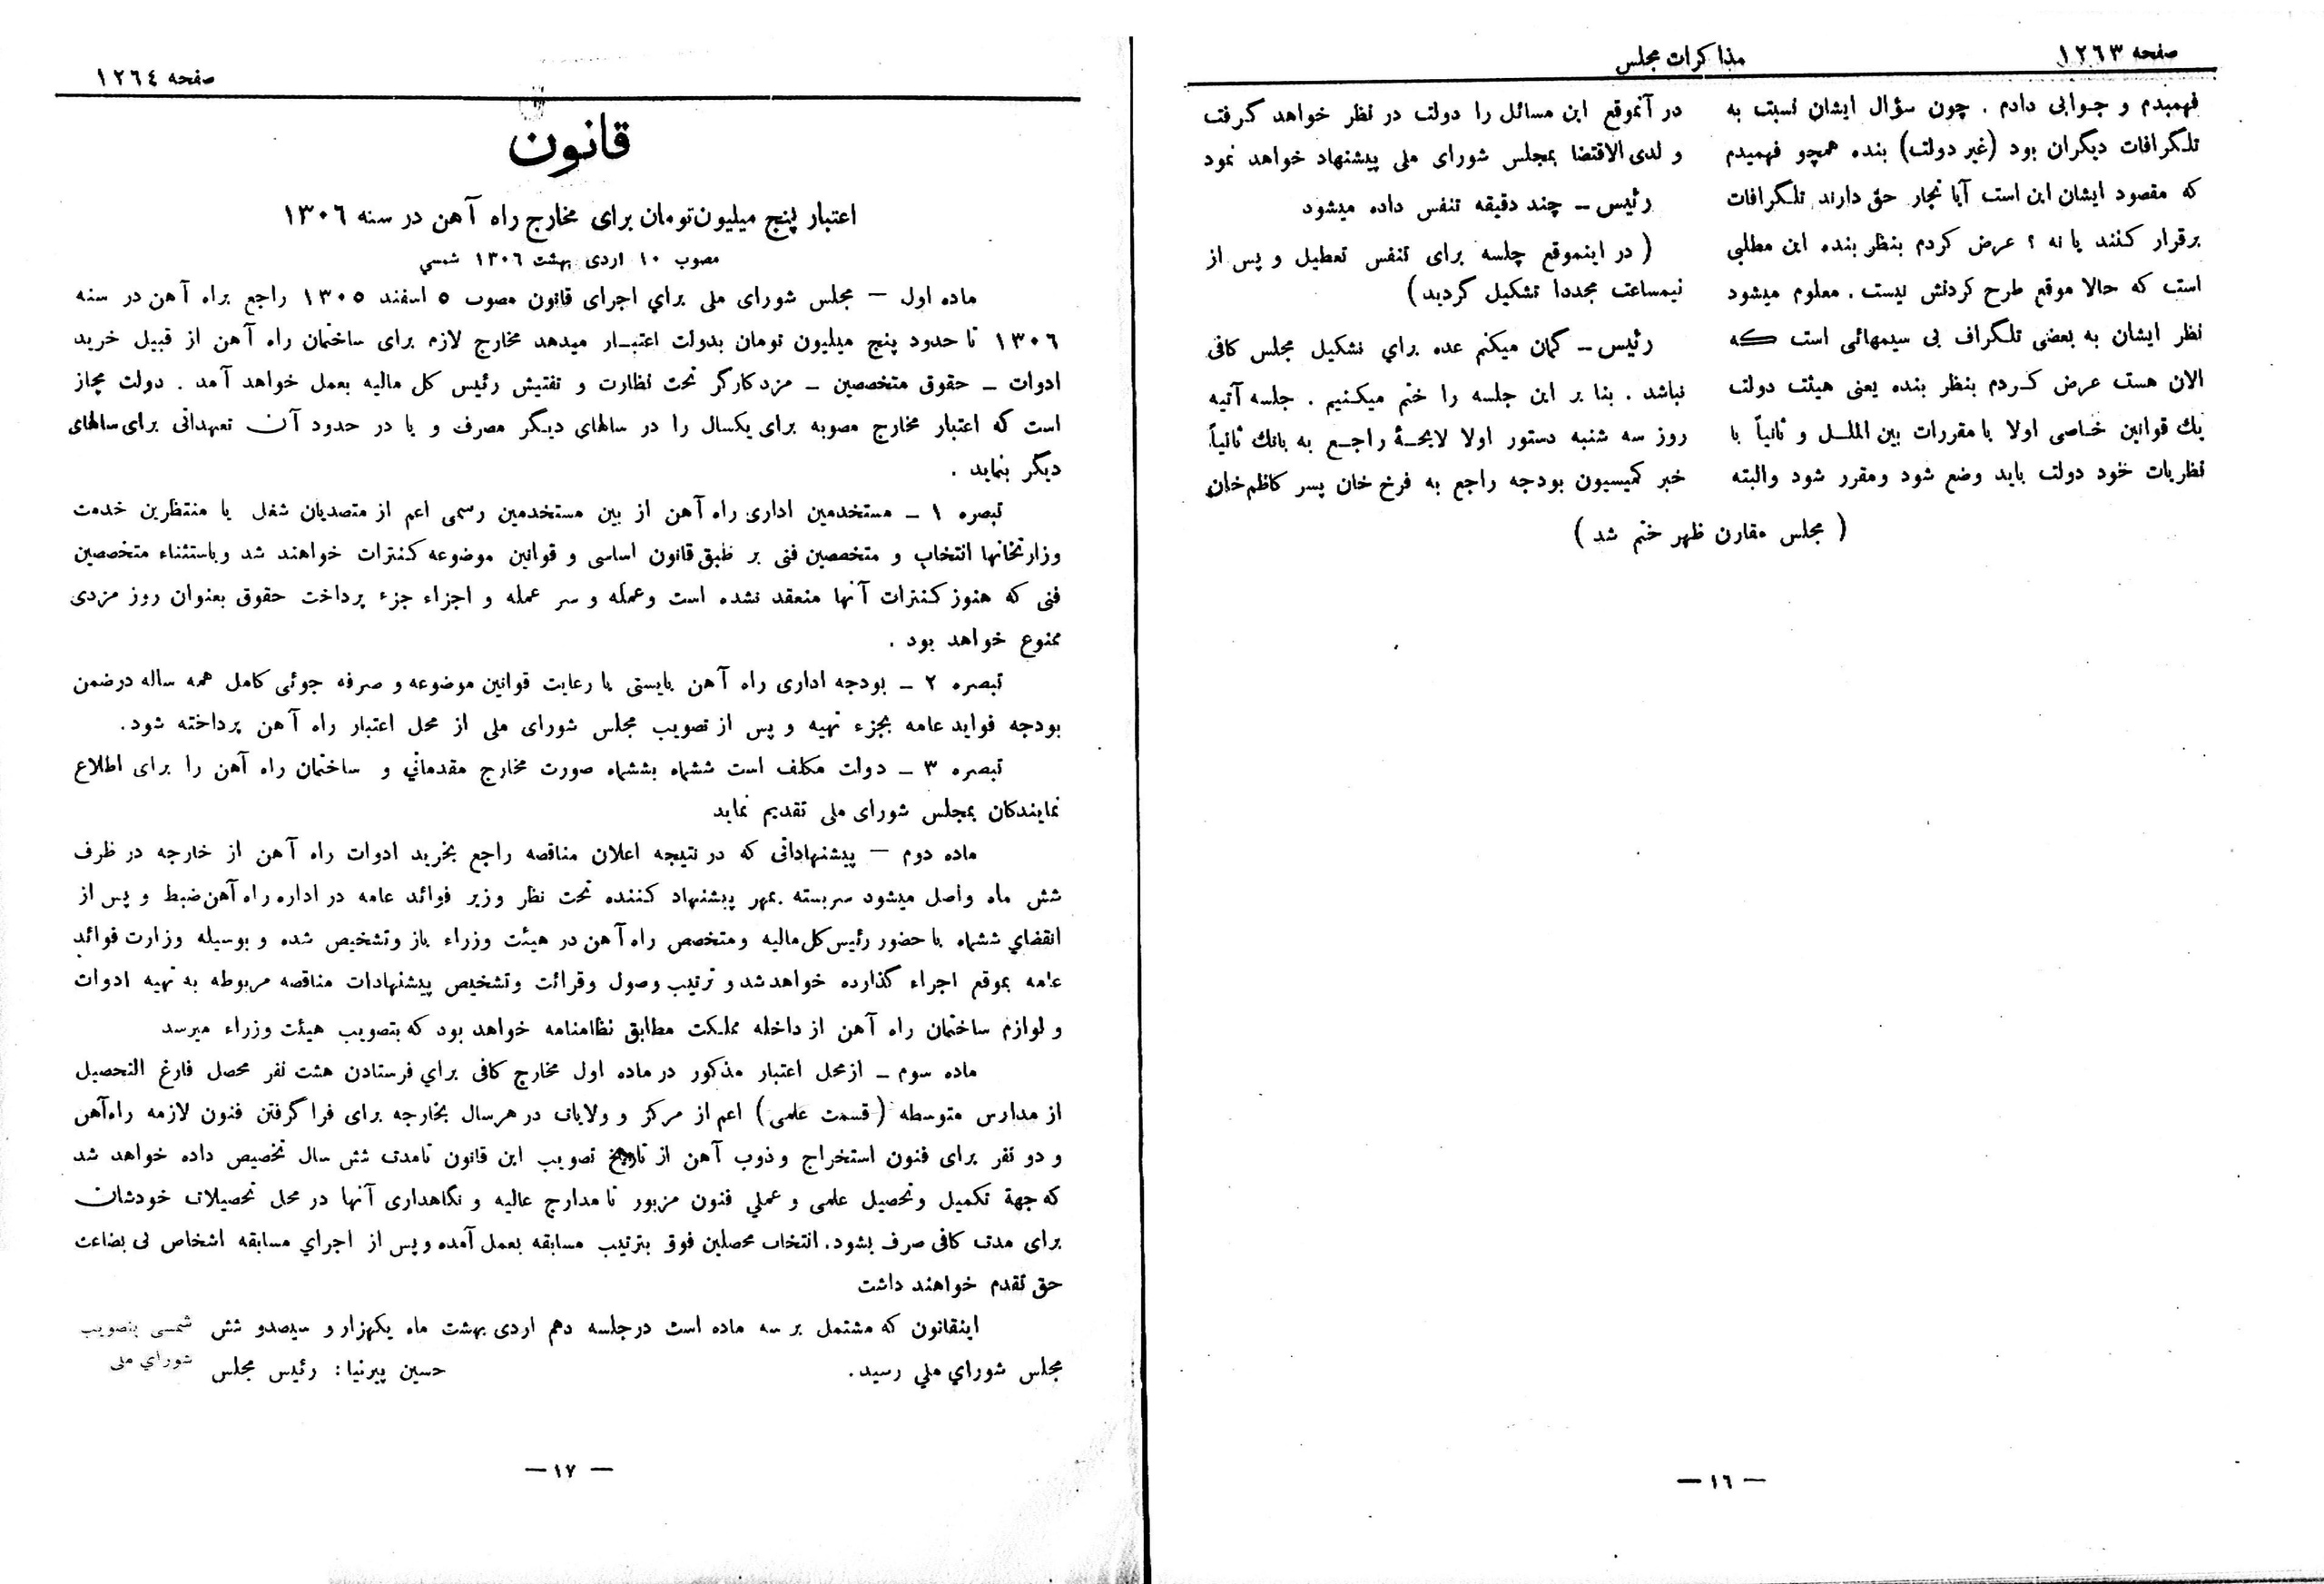 صفحه ١٢٦٣
مذاکرات مجلس
فهمیدم و جوابی دادم . چون سؤال ایشان نسبت به
تلگرافات دیگران بود (غیر دولت) بنده همچو فهمیدم
که مقصود ایشان این است آیا تجار حق دارند تلگرافات
برقرار کنند یا نه ؟ عرض کردم بنظر بنده این مطلبی
است که حالا موقع طرح کردنش نیست . معلوم میشود
نظر ایشان به بعضی تلگراف بی سیمهائی است که
الان هست عرض کردم بنظر بنده یعنی هیئت دولت
یك قوانین خاصی اولا با مقررات بین الملل و ثانیاً با
نظریات خود دولت باید وضع شود ومقرر شود والبته
در آنموقع این مسائل را دولت در نظر خواهد گرفت
و لدی الاقتضا بمجلس شورای ملی پیشنهاد خواهد نمود
رئیس ـ چند دقیقه تنفس داده میشود
( در اینموقع جلسه برای تنفس تعطیل و پس از
نیمساعت مجددا تشکیل گردید )
رئیس ـ گمان میکنم عده براي تشکیل مجلس کافی
نباشد . بنا بر این جلسه را ختم میکنیم . جلسه آتیه
روز سه شنبه دستور اولا لایحهٔ راجع به بانك ثانیاً
خبر کمیسیون بودجه راجع به فرخ خان پسر کاظم‌خان
( مجلس مقارن ظهر ختم شد )
— ١٦ —
صفحه ١٢٦٤
قانون
اعتبار پنج میلیون تومان برای مخارج راه آهن در سنه ١٣٠٦
مصوب ١٠ اردی بهشت ١٣٠٦ شمسي
ماده اول — مجلس شورای ملی براي اجرای قانون مصوب ٥ اسفند ١٣٠٥ راجع براه آهن در سنه
١٣٠٦ تا حدود پنج میلیون تومان بدولت اعتبار میدهد مخارج لازم برای ساختمان راه آهن از قبیل خرید
ادوات ـ حقوق متخصصین ـ مزد کارگر تحت نظارت و تفتیش رئیس کل مالیه بعمل خواهد آمد . دولت مجاز
است که اعتبار مخارج مصوبه برای یکسال را در سالهای دیگر مصرف و یا در حدود آن تعهداتی برای سالهای
دیگر بنماید .
تبصره ١ ـ مستخدمین اداری راه آهن از بین مستخدمین رسمی اعم از متصدیان شغل یا منتظرین خدمت
وزارتخانها انتخاب و متخصصین فنی بر طبق قانون اساسی و قوانین موضوعه کنترات خواهند شد وباستثناء متخصصین
فنی که هنوز کنترات آنها منعقد نشده است وعمله و سر عمله و اجزاء جزء پرداخت حقوق بعنوان روز مزدی
ممنوع خواهد بود .
تبصره ٢ ـ بودجه اداری راه آهن بایستی با رعایت قوانین موضوعه و صرفه جوئی کامل همه ساله درضمن
بودجه فواید عامه بجزء تهیه و پس از تصویب مجلس شورای ملی از محل اعتبار راه آهن پرداخته شود .
تبصره ٣ ـ دولت مکلف است ششماه بششماه صورت مخارج مقدماتي و ساختمان راه آهن را برای اطلاع
نمایندکان بمجلس شورای ملی تقدیم نماید
ماده دوم — پیشنهاداتی که در نتیجه اعلان مناقصه راجع بخرید ادوات راه آهن از خارجه در ظرف
شش ماه واصل میشود سربسته بمهر پیشنهاد کننده تحت نظر وزیر فوائد عامه در اداره راه آهن ضبط و پس از
انقضاي ششماه با حضور رئیس کل مالیه ومتخصص راه آهن در هیئت وزراء باز وتشخیص شده و بوسیله وزارت فوائد
عامه بموقع اجراء گذارده خواهد شد و ترتیب وصول وقرائت وتشخیص پیشنهادات مناقصه مربوطه به تهیه ادوات
و لوازم ساختمان راه آهن از داخله مملکت مطابق نظامنامه خواهد بود که بتصویب هیئت وزراء میرسد
ماده سوم ـ ازمحل اعتبار مذکور در ماده اول مخارج کافی براي فرستادن هشت نفر محصل فارغ التحصیل
از مدارس متوسطه (قسمت علمی) اعم از مرکز و ولایات در هرسال بخارجه برای فرا گرفتن فنون لازمه راه‌آهن
و دو نفر برای فنون استخراج و ذوب آهن از تاریخ تصویب این قانون تامدت شش سال تخصیص داده خواهد شد
که جهة تکمیل وتحصیل علمی و عملي فنون مزبور تا مدارج عالیه و نگاهداری آنها در محل تحصیلات خودشان
برای مدت کافی صرف بشود . انتخاب محصلین فوق بترتیب مسابقه بعمل آمده وپس از اجراي مسابقه اشخاص بی بضاعت
حق تقدم خواهند داشت
اینقانون که مشتمل بر سه ماده است درجلسه دهم اردی بهشت ماه یکهزار و سیصدو شش شمسی بتصویب
مجلس شوراي ملي رسید .
حسین پیرنیا: رئیس مجلس شوراي ملی
— ١٧ —